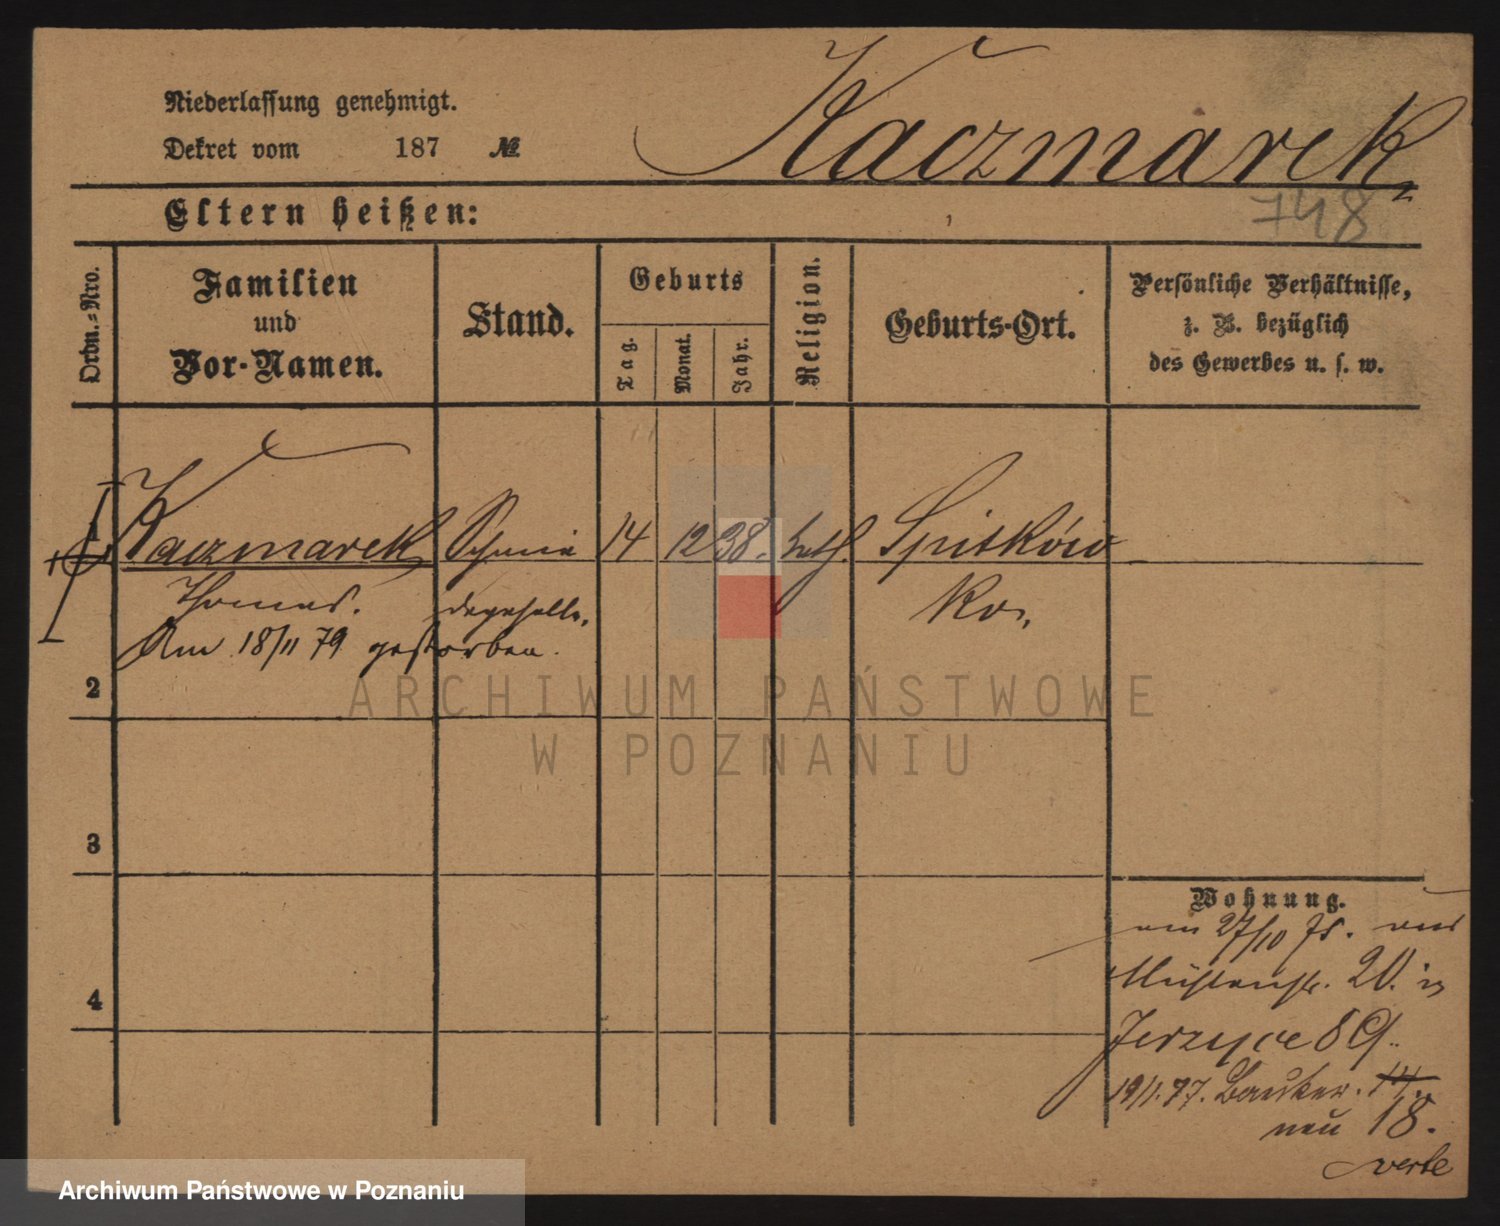 Niederlassung genehmigt.
Dekret vom 187 №
Kaczmarek
748
Eltern heißen:
Ordn.-Nro.
Familien
und
Vor-Namen.
Stand.
Geburts
Tag.
Monat.
Jahr.
Religion.
Geburts-Ort.
Persönliche Verhältnisse,
z. B. bezüglich
des Gewerbes u. s. w.
1
Kaczmarek 14 12 38. kath.
Thomas.
Am 18/11 79 gestorben.
2
3
4
Wohnung.
am 27/10
20. in
Jerzyce
19/1. 77. 14.
neu 18.
ARCHIWUM PAŃSTWOWE
W POZNANIU
Archiwum Państwowe w Poznaniu